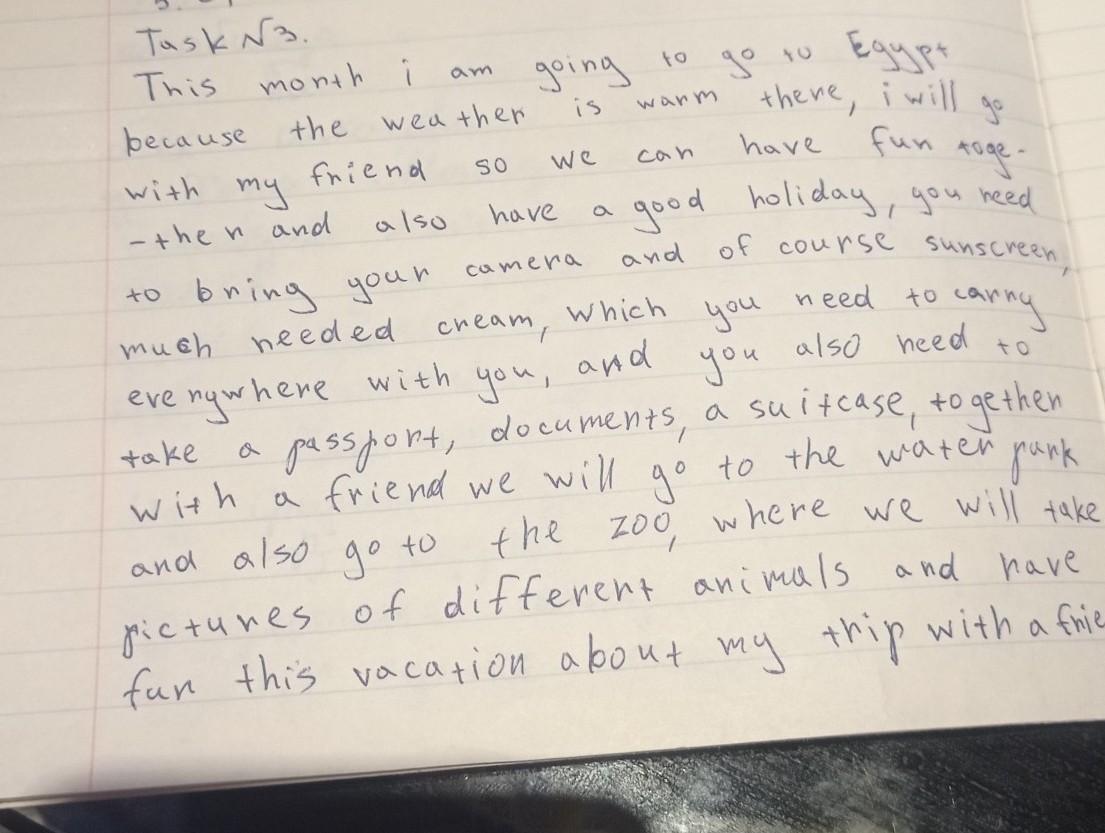 Task №3.
This month i am going to go to Egypt
because the weather is warm there, i will go
with my friend so we can have fun toge-
-ther and also have a good holiday, you need
to bring your camera and of course sunscreen,
much needed cream, which you need to carry
everywhere with you, and you also need to
take a passport, documents, a suitcase, together
with a friend we will go to the water park
and also go to the zoo, where we will take
pictures of different animals and have
fun this vacation about my trip with a frie